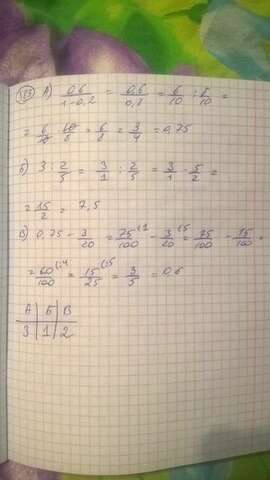 123) А) 0,6/1-0,2 = 0,6/0,8 = 6/10 : 8/10 =
= 6/10 · 10/8 = 6/8 = 3/4 = 0,75
Б) 3 : 2/5 = 3/1 : 2/5 = 3/1 · 5/2 =
= 15/2 = 7,5
В) 0,75 - 3/20 = 75/100 - 3/20 (5 = 75/100 - 15/100 =
= 60/100 (:4 = 15/25 (:5 = 3/5 = 0,6
А | Б | В
3 | 1 | 2